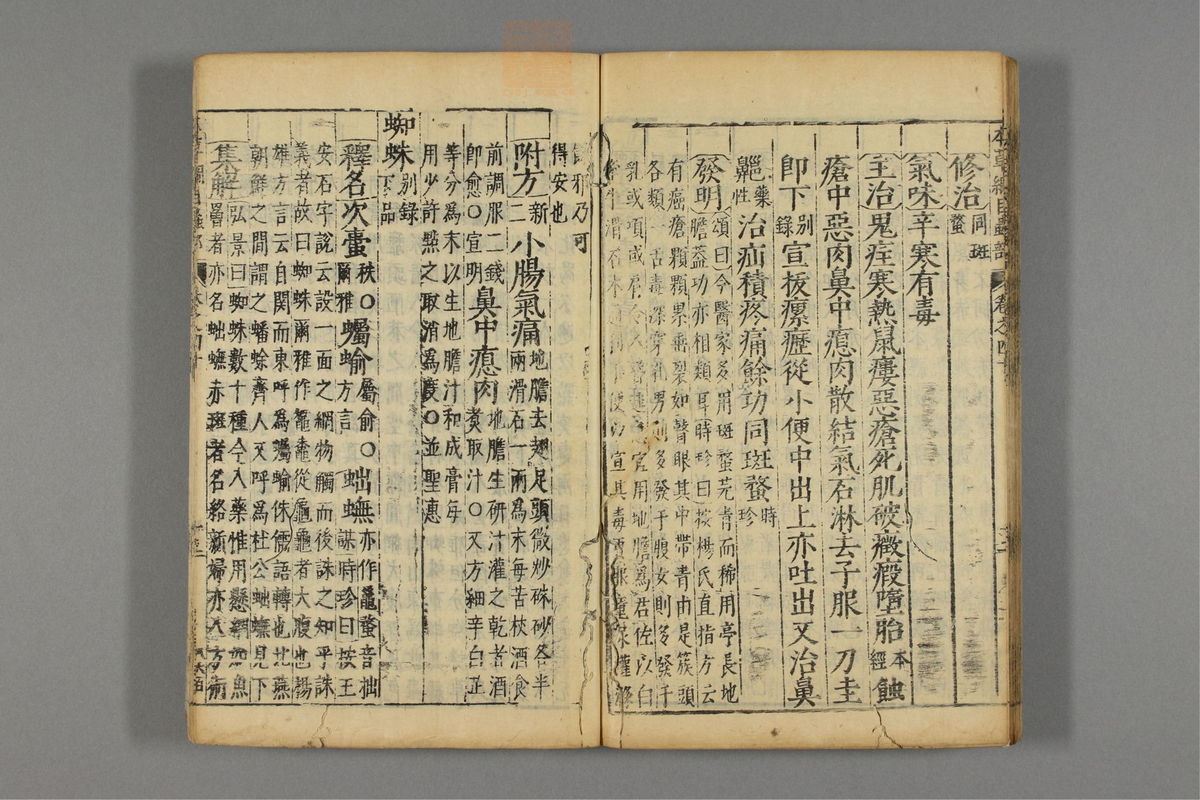 修治同斑蝥
氣味辛寒有毒
主治鬼疰寒熱鼠瘻惡瘡死肌破癥瘕墮胎本經蝕
瘡中惡肉鼻中瘜肉散結氣石淋去子服一刀圭
卽下別錄宣拔瘰癧從小便中出上亦吐出又治鼻
齆藥性治疝積疼痛餘功同斑蝥時珍
發明頌曰今醫家多用斑蝥芫青而稀用亭長地
膽葢功亦相類耳時珍曰按楊氏直指方云
有癌瘡顆顆累垂裂如瞽眼其中帶青由是簇頭
各類一舌毒深穿孔男則多發于腹女則多發于
乳或項或肩令人昏迷急宜用地膽爲君佐以白
牽牛滑石木
得安也
附方新二小腸氣痛地膽去翅足頭微炒硃砂各半
兩滑石一兩爲末每苦杖酒食
前調服二錢
卽愈〇宣明鼻中瘜肉地膽生研汁灌之乾者酒
煮取汁〇又方細辛白芷
等分爲末以生地膽汁和成膏每
用少許點之取消爲度〇並聖惠
蜘蛛別錄下品
釋名次蟗秋〇爾雅蠾蝓屬俞〇方言䖦蟱亦作鼄蝥音拙
謀時珍曰按王
安石字說云設一面之網物觸而後誅之知乎誅
義者故曰蜘蛛爾雅作鼅鼄從黽黽者大腹也揚
雄方言云自關而東呼爲蠾蝓侏儒語轉也北燕
朝鮮之間謂之蝳蜍齊人又呼爲社公䖦蟱見下
集解弘景曰蜘蛛數十種今入藥惟用懸網如魚
罾者亦名䖦蟱赤斑者名絡新婦亦入方術